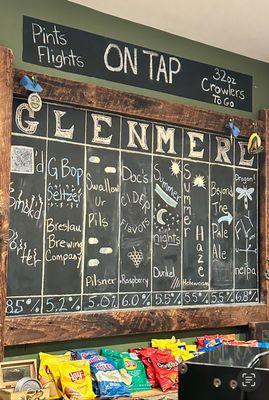 GLENMERE
Pints
Flights
ON TAP
32oz
Crowlers
To Go
GLENMEREL
GBop
Seltzer
Breslau
Brewing
Company
5.2%
Swallow
ur
Pils
Pilsner
5.0%
Doc's
CIDER
FLAVORS
Raspberry
6.0%
Summer
nights
Dunkel
5.5%
Summer
Haze
Hefeweizen
5.5%
Beyond
The
Pale
Ale
5.5%
Dragon
6.8%
8.5%
Lay's